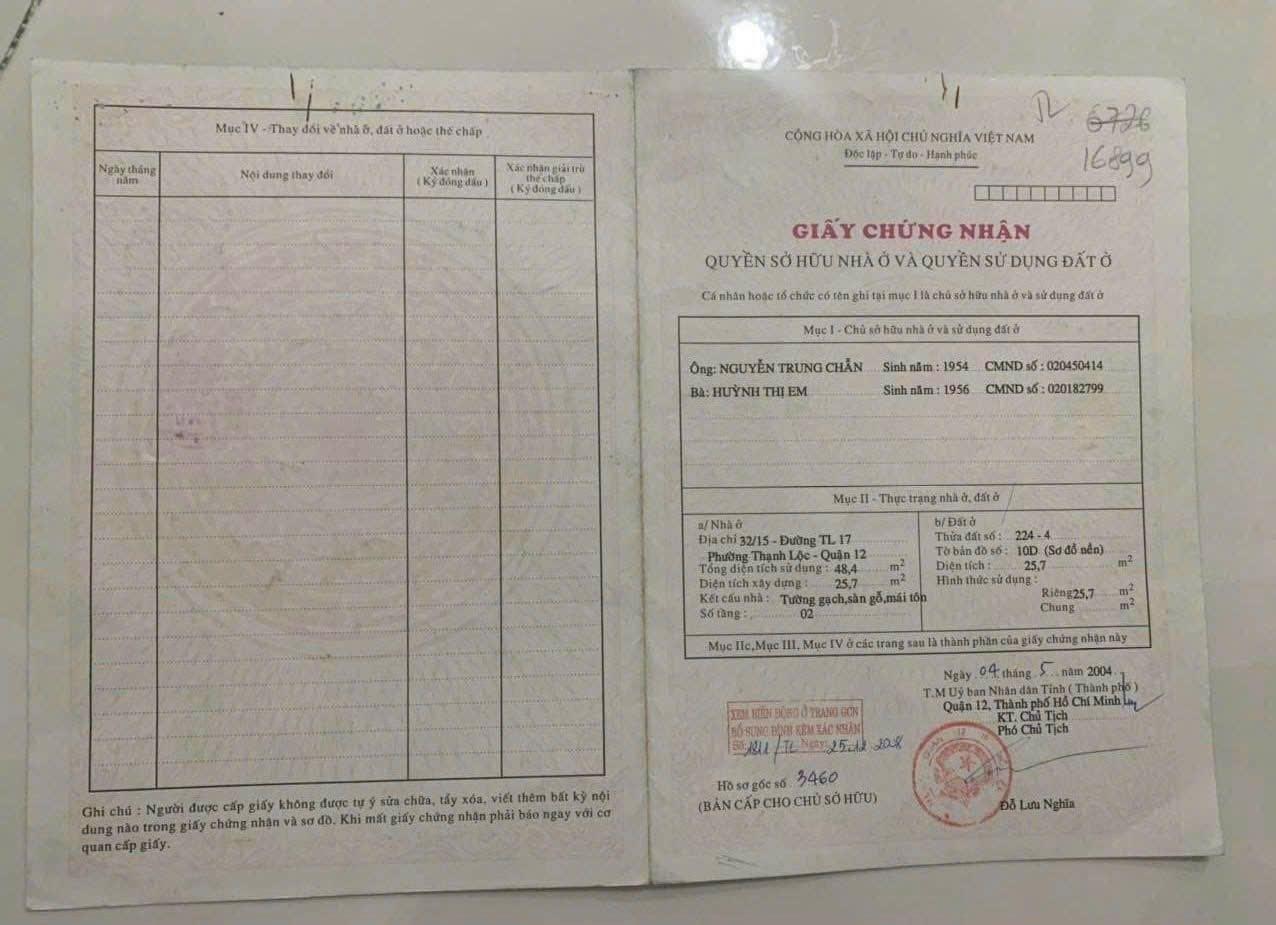 Mục IV - Thay đổi về nhà ở, đất ở hoặc thế chấp
Ngày tháng năm
Nội dung thay đổi
Xác nhận
( Ký đóng dấu )
Xác nhận giải trừ
thế chấp
( Ký đóng dấu )
Ghi chú : Người được cấp giấy không được tự ý sửa chữa, tẩy xóa, viết thêm bất kỳ nội
dung nào trong giấy chứng nhận và sơ đồ. Khi mất giấy chứng nhận phải báo ngay với cơ
quan cấp giấy.
CỘNG HÒA XÃ HỘI CHỦ NGHĨA VIỆT NAM
Độc lập - Tự do - Hạnh phúc
TL
6726
16899
GIẤY CHỨNG NHẬN
QUYỀN SỞ HỮU NHÀ Ở VÀ QUYỀN SỬ DỤNG ĐẤT Ở
Cá nhân hoặc tổ chức có tên ghi tại mục I là chủ sở hữu nhà ở và sử dụng đất ở
Mục I - Chủ sở hữu nhà ở và sử dụng đất ở
Ông: NGUYỄN TRUNG CHẴN Sinh năm : 1954 CMND số : 020450414
Bà: HUỲNH THỊ EM Sinh năm : 1956 CMND số : 020182799
Mục II - Thực trạng nhà ở, đất ở
a/ Nhà ở
Địa chỉ 32/15 - Đường TL 17
Phường Thạnh Lộc - Quận 12
Tổng diện tích sử dụng : 48,4 m2
Diện tích xây dựng : 25,7 m2
Kết cấu nhà : Tường gạch,sàn gỗ,mái tôn
Số tầng : 02
b/ Đất ở
Thửa đất số : 224 - 4
Tờ bản đồ số : 10D (Sơ đồ nền)
Diện tích : 25,7 m2
Hình thức sử dụng :
Riêng 25,7 m2
Chung m2
Mục IIc,Mục III, Mục IV ở các trang sau là thành phần của giấy chứng nhận này
Ngày 04 tháng 5 năm 2004
T.M Uỷ ban Nhân dân Tỉnh ( Thành phố )
Quận 12, Thành phố Hồ Chí Minh
KT. Chủ Tịch
Phó Chủ Tịch
XEM BIẾN ĐỘNG Ở TRANG GCN
BỔ SUNG ĐÍNH KÈM XÁC NHẬN
Số: /TL Ngày: 25.12
Hồ sơ gốc số 3460
(BẢN CẤP CHO CHỦ SỞ HỮU)
Đỗ Lưu Nghĩa